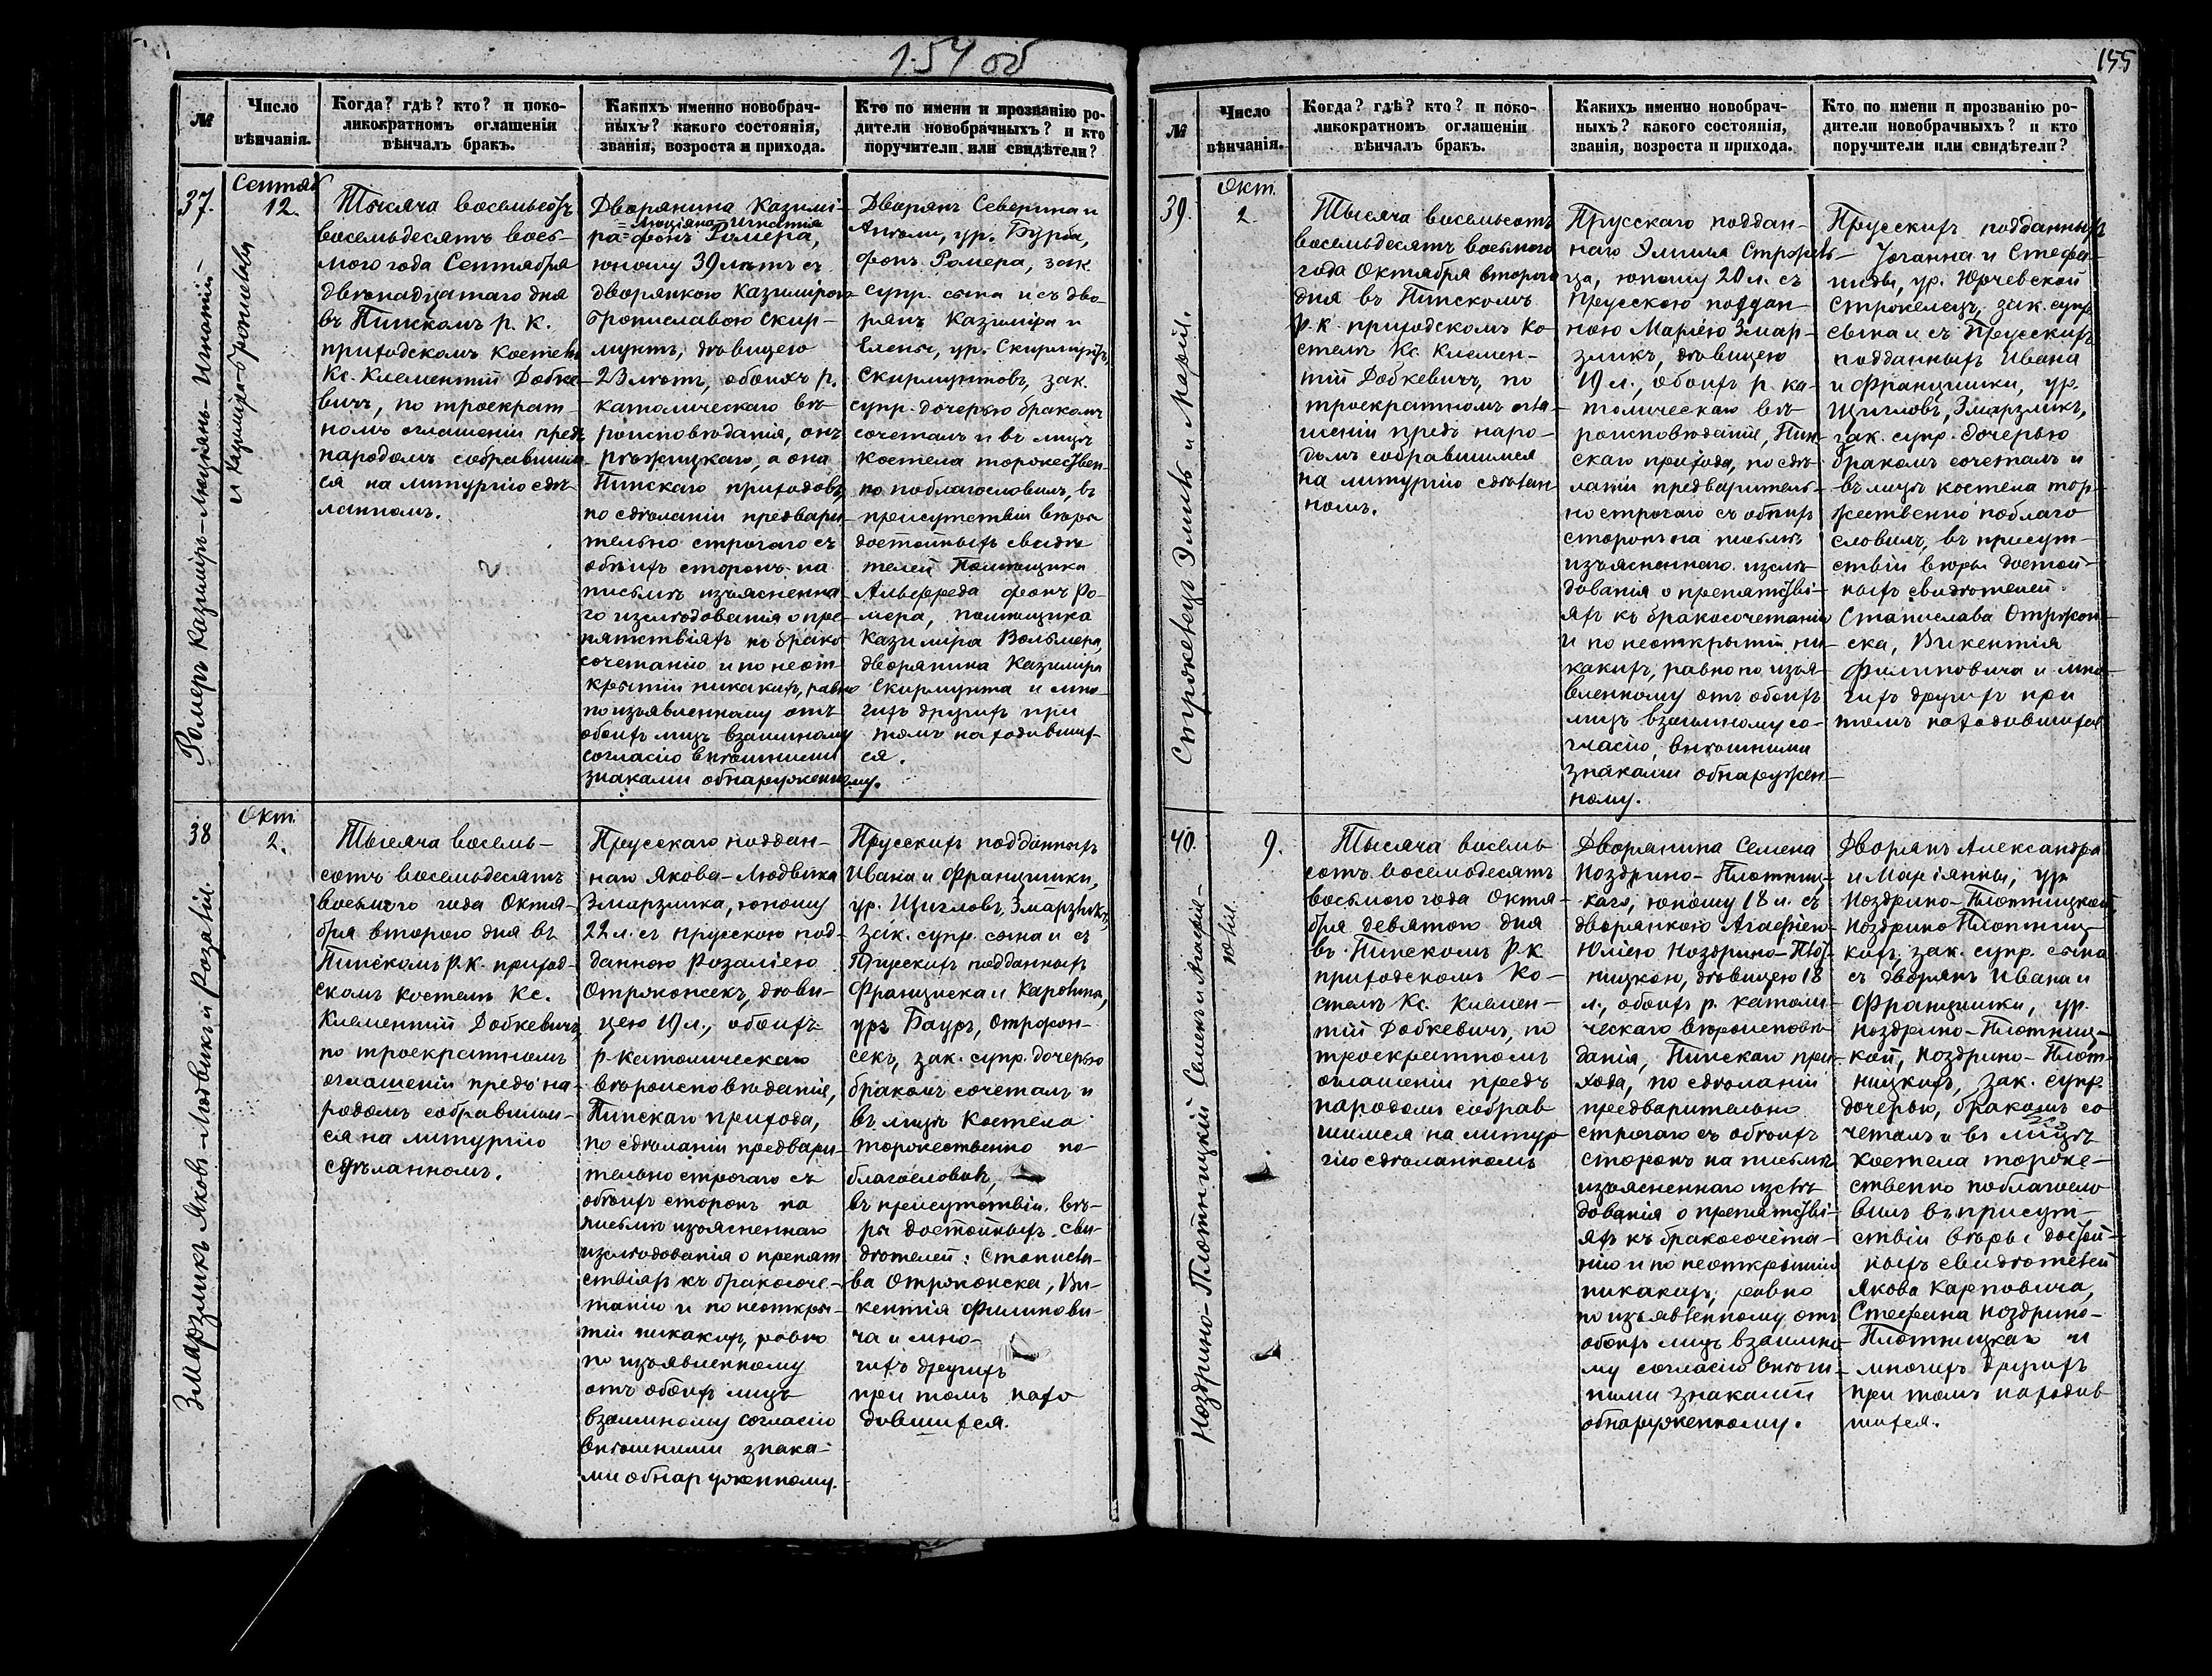 154 об
№
Число
вѣнчанія.
Когда? гдѣ? кто? и поко-
ликократномъ оглашеніи
вѣнчалъ бракъ.
Какихъ именно новобрач-
ныхъ? какого состоянія,
званія, возроста и прихода.
Кто по имени и прозванію ро-
дители новобрачныхъ? и кто
поручители или свидѣтели?
37.
Ромеръ Казиміръ-Люціянъ-Игнатій-
и Казиміра-Бронислава
Сентяб
12.
Тысяча восемьсотъ
восемьдесятъ вось-
мого года Сентября
двѣнадцатаго дня
въ Пинскомъ р. К.
приходскомъ Костелѣ
Кс. Климентій Добке-
вичъ, по троекрат-
номъ оглашеніи предъ
народомъ собравшим-
ся на литургію сдѣ-
ланномъ.
Дворянина Казимі-
=Люціяна-Игнатія
ра=фонъ Ромера,
юношу 39 лѣтъ съ
дворянкою Казимірою-
Брониславою Скир-
мунтъ, дѣвицею
23 лѣтъ, обоихъ р.
католическаго вѣ-
роисповѣданія, онъ
а она
Пинскаго приходовъ,
по сдѣланіи предвари-
тельно строгаго съ
обѣихъ сторонъ на
письмѣ изъясненна-
го изслѣдованія о пре-
пятствіяхъ къ брако-
сочетанію и по неот-
крытіи никакихъ, равно
по изъявленному отъ
обоихъ лицъ взаимному
согласію внѣшними
знаками обнаруженному.
Дворянъ Северина и
Анѣли, ур. Бурба,
фонъ Ромера, зак.
супр. сына и съ дво-
рянъ Казиміра и
Елены, ур. Скирмунтъ,
Скирмунтовъ, зак.
супр. дочерью бракомъ
сочеталъ и въ лицѣ
Костела торжествен-
но поблагословилъ, въ
присутствіи вѣры
достойныхъ свидѣ-
телей Помѣщика
Альфреда фонъ Ро-
мера, помѣщика
Казиміра Вольмера,
дворянина Казиміра
Скирмунта и мно-
гихъ другихъ при
томъ находивших-
ся.
38
Змарзликъ Яковъ-Людвикъ и Розалія.
Окт.
2.
Тысяча восемь-
сотъ восемьдесятъ
восьмого года Октя-
бря второго дня въ
Пинскомъ Р. К. приход-
скомъ Костелѣ Кс.
Климентій Добкевичъ,
по троекратномъ
оглашеніи предъ на-
родомъ собравшим-
ся на литургію
сдѣланномъ.
Прусскаго поддан-
наго Якова-Людвика
Змарзлика, юношу
22 л. съ прусскою под-
данною Розаліею
Отржонсекъ, дѣви-
цею 19 л., обоихъ
р-католическаго
вѣроисповѣданія,
Пинскаго прихода,
по сдѣланіи предвари-
тельно строгаго съ
обѣихъ сторонъ на
письмѣ изъясненнаго
изслѣдованія о препят-
ствіяхъ къ бракосоче-
танію и по неоткры-
тіи никакихъ, равно
по изъявленному
отъ обоихъ лицъ
взаимному согласію
внѣшними знака-
ми обнаруженному.
Прусскихъ подданныхъ
Ивана и Францишки,
ур. Щигловъ, Змарзликъ,
зак. супр. сына и съ
Прусскихъ подданныхъ
Франциска и Каролины,
ур. Бауръ, Отржон-
секъ, зак. супр. дочерью
бракомъ сочеталъ и
въ лицѣ Костела
торжественно по-
благословилъ,
въ присутствіи вѣ-
ры достойныхъ сви-
дѣтелей: Станисла-
ва Отржонска, Ви-
кентія Филипови-
ча и мно-
гихъ другихъ
при томъ нахо-
дившихся.
155
№
Число
вѣнчанія.
Когда? гдѣ? кто? и поко-
ликократномъ оглашеніи
вѣнчалъ бракъ.
Какихъ именно новобрач-
ныхъ? какого состоянія,
званія, возроста и прихода.
Кто по имени и прозванію ро-
дители новобрачныхъ? и кто
поручители или свидѣтели?
39.
Строкелецъ Эмиль и Марія.
Окт.
2
Тысяча восемьсотъ
восемьдесятъ восьмого
года Октября второго
дня въ Пинскомъ
р. К. приходскомъ Ко-
стелѣ Кс. Климен-
тій Добкевичъ, по
троекратномъ огла-
шеніи предъ наро-
домъ собравшимся
на литургію сдѣлан-
номъ.
Прусскаго поддан-
наго Эмиля Строкель-
ца, юношу 20 л. съ
прусскою поддан-
ною Маріею Змар-
зликъ, дѣвицею
19 л., обоихъ р. ка-
толическаго вѣ-
роисповѣданія, Пин-
скаго прихода, по сдѣ-
ланіи предваритель-
но строгаго съ обѣихъ
сторонъ на письмѣ
изъясненнаго изслѣ-
дованія о препятстві-
яхъ къ бракосочетанію
и по неоткрытіи ни-
какихъ, равно по изъя-
вленному отъ обоихъ
лицъ взаимному со-
гласію, внѣшними
знаками обнаружен-
ному.
Прусскихъ подданныхъ
Іоганна и Стефа-
ниды, ур. Юрчевской
Строкелецъ, зак. супр.
сына и съ Прусскихъ
подданныхъ Ивана
и Францишки, ур.
Щигловъ, Змарзликъ,
зак. супр. дочерью
бракомъ сочеталъ и
въ лицѣ костела тор-
жественно поблаго-
словилъ, въ присут-
ствіи вѣры достой-
ныхъ свидѣтелей.
Станислава Отржон-
ска, Викентія
Филиповича и мно-
гихъ другихъ при
томъ находившихся
40.
Ноздрино-Плотницкій Семенъ и Агафія-
Юлія.
9.
Тысяча восемь-
сотъ восемьдесятъ
восьмого года Октя-
бря девятого дня
въ Пинскомъ Р. К
приходскомъ Ко-
стелѣ Кс. Климен-
тій Добкевичъ, по
троекратномъ
оглашеніи предъ
народомъ собрав-
шимся на литур-
гію сдѣланномъ
Дворянина Семена
Ноздрино-Плотниц-
каго, юношу 18 л. съ
дворянкою Агафіею-
Юліею Ноздрино-Плот-
ницкою, дѣвицею 18
л., обоихъ р. католи-
ческаго вѣроисповѣ-
данія, Пинскаго при-
хода, по сдѣланіи
предварительно
строгаго съ обѣихъ
сторонъ на письмѣ
изъясненнаго изслѣ-
дованія о препятстві-
яхъ къ бракосочета-
нію и по неоткрытіи
никакихъ, равно
по изъявленному отъ
обоихъ лицъ взаимно-
му согласію внѣш-
ними знаками
обнаруженному.
Дворянъ Александра
и Маріянны, ур.
Ноздрино-Плотницкой,
Ноздрино Плотниц-
кихъ, зак. супр. сына
съ дворянъ Ивана и
Францишки, ур.
Ноздрино-Плотниц-
кой, Ноздрино-Плот-
ницкихъ, зак. супр.
дочерью, бракомъ со-
четалъ и въ лицѣ
Костела торже-
ственно поблагосло-
вилъ въ присут-
ствіи вѣры достой-
ныхъ свидѣтелей
Якова Карповича,
Стефана Ноздрино-
Плотницкаго и
многихъ другихъ
при томъ находив-
шихся.